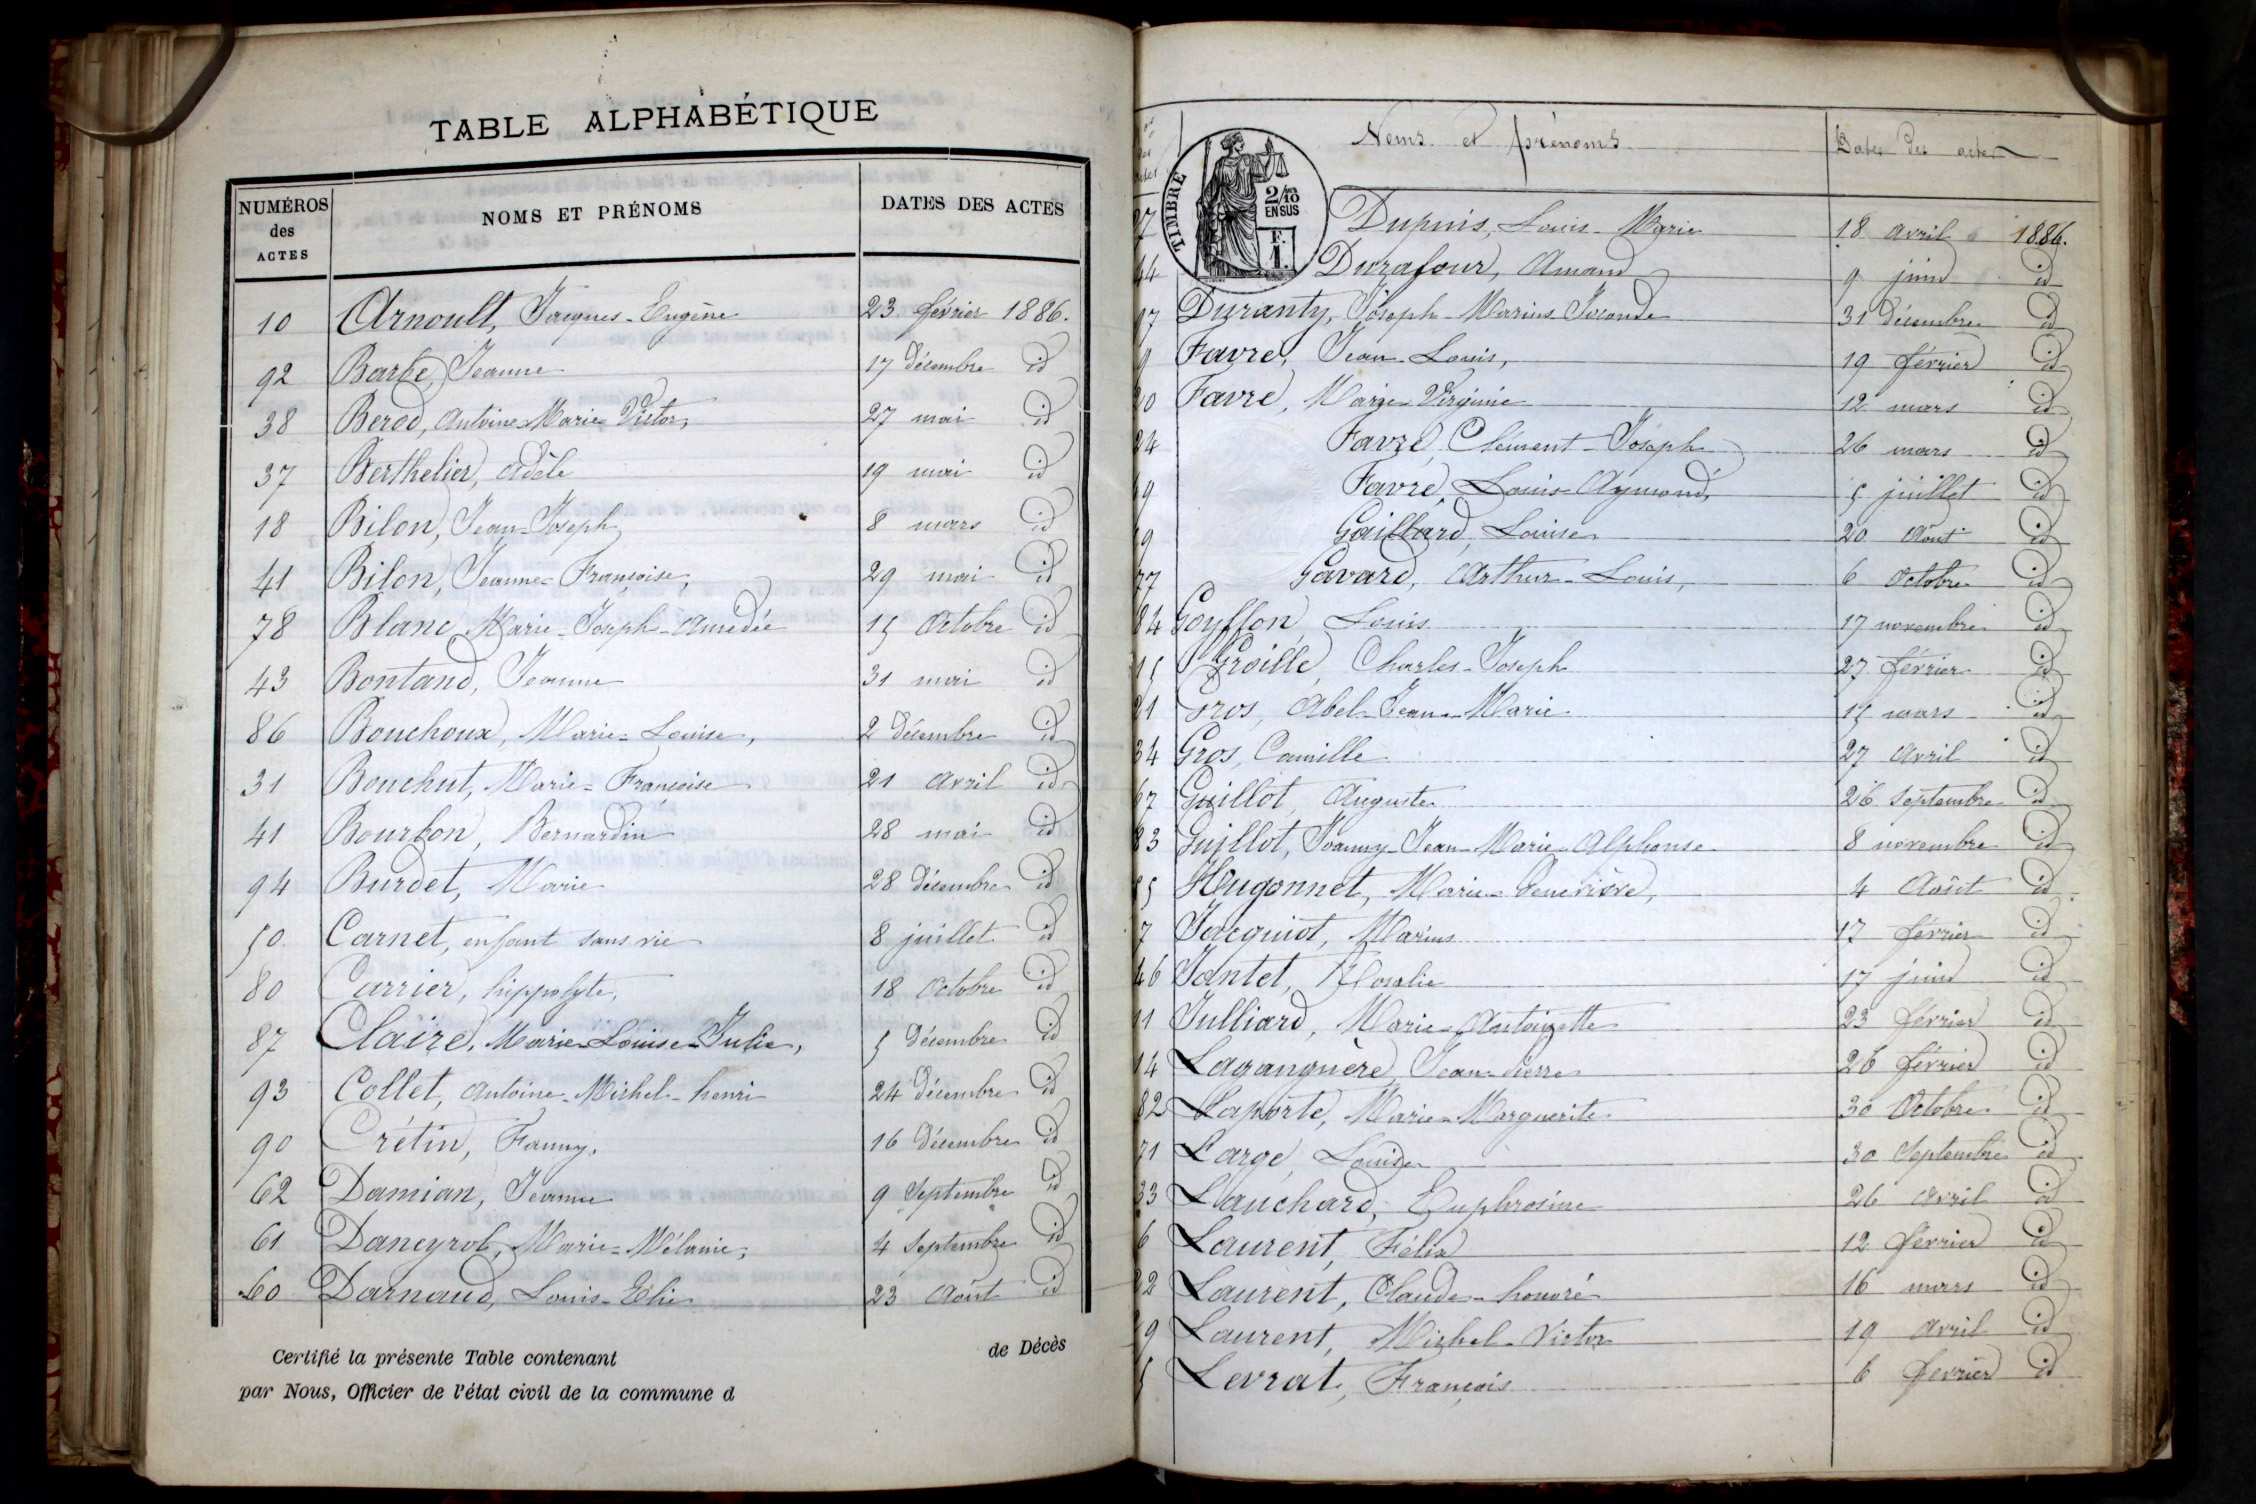 TABLE ALPHABÉTIQUE
NUMÉROS des ACTES NOMS ET PRÉNOMS DATES DES ACTES
10 Arnoult, Jacques-Eugène 23 février 1886.
92 Barbe, Jeanne 17 décembre id
38 Berod, Antoine-Marie Victor, 27 mai id
37 Berthelier, Adèle 19 mai id
18 Bilon, Jean-Joseph 8 mars id
41 Bilon, Jeanne-Françoise, 29 mai id
78 Blanc Marie-Joseph-Amédée 15 Octobre id
43 Bontand, Jeanne 31 mai id
86 Bouchoux, Marie-Louise, 2 décembre id
31 Bouchut, Marie-Françoise 21 avril id
41 Bourbon, Bernardin 28 mai id
94 Burdet, Marie 28 décembre id
50 Carnet, enfant sans vie 8 juillet id
80 Carrier, hippolyte, 18 Octobre id
87 Claire, Marie-Louise-Julie, 5 décembre id
93 Collet, Antoine-Michel-henri 24 décembre id
90 Crétin, Fanny. 16 décembre id
62 Damian, Jeanne 9 Septembre id
61 Daneyrol, Marie-Mélanie, 4 Septembre id
60 Darnaud, Louis-Elie 23 Août id
Certifié la présente Table contenant de Décès
par Nous, Officier de l'état civil de la commune d
Noms et prénoms Dates des actes
TIMBRE
2/10 EN SUS
F. 1.
27 Dupuis, Louis-Marie 18 avril 1886.
44 Durafour, Amand 9 juin id
97 Duranty, Joseph-Marius Joconde 31 décembre id
9 Favre, Jean-Louis, 19 février id
20 Favre, Marie-Virginie 12 mars id
24 Favre, Clément-Joseph 26 mars id
49 Favre, Louis-Aymond, 5 juillet id
59 Gaillard, Louise 20 Août id
77 Gavard, Arthur-Louis, 6 Octobre id
84 Goyffon, Louis 17 novembre id
15 Groillé, Charles-Joseph 27 février id
21 Gros, Abel-Jean-Marie 15 mars id
34 Gros, Camille 27 Avril id
67 Guillot, Auguste 26 septembre id
83 Guillot, Joanny-Jean-Marie-Alphonse 8 novembre id
55 Hugonnet, Marie-Geneviève, 4 Août id
7 Jacquiot, Marius 17 février id
46 Jantet, Rosalie 17 juin id
11 Julliard, Marie-Antoinette 23 février id
14 Laganguère, Jean-Pierre 26 février id
82 Laporte, Marie-Marguerite 30 Octobre id
71 Large, Louise 30 Septembre id
33 Lauchard, Euphrosine 26 Avril id
6 Laurent, Félix 12 février id
22 Laurent, Claude-honoré 16 mars id
29 Laurent, Michel-Victor 19 Avril id
5 Levrat, François 6 février id